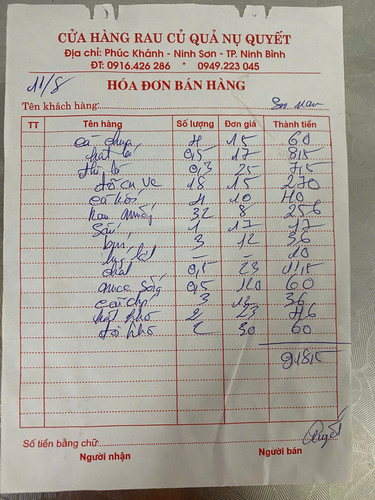 CỬA HÀNG RAU CỦ QUẢ NỤ QUYẾT
Địa chỉ: Phúc Khánh - Ninh Sơn - TP. Ninh Bình
ĐT: 0916.426 286 * 0949.223 045
11/8
HÓA ĐƠN BÁN HÀNG
Tên khách hàng:
TT Tên hàng Số lượng Đơn giá Thành tiền
cà chua 4 15 60
0,5 17 8,5
thì là 0,3 25 7,5
đỗ cu ve 18 15 270
4 10 40
rau muống 32 8 256
Sắn 1 17 17
bí 3 12 36
- - 20
chát 0,5 23 11,5
mùa Sống 0,5 120 60
3 12 36
2 23 46
đỗ khô 2 30 60
918,5
Số tiền bằng chữ:
Người nhận Người bán
Quyết